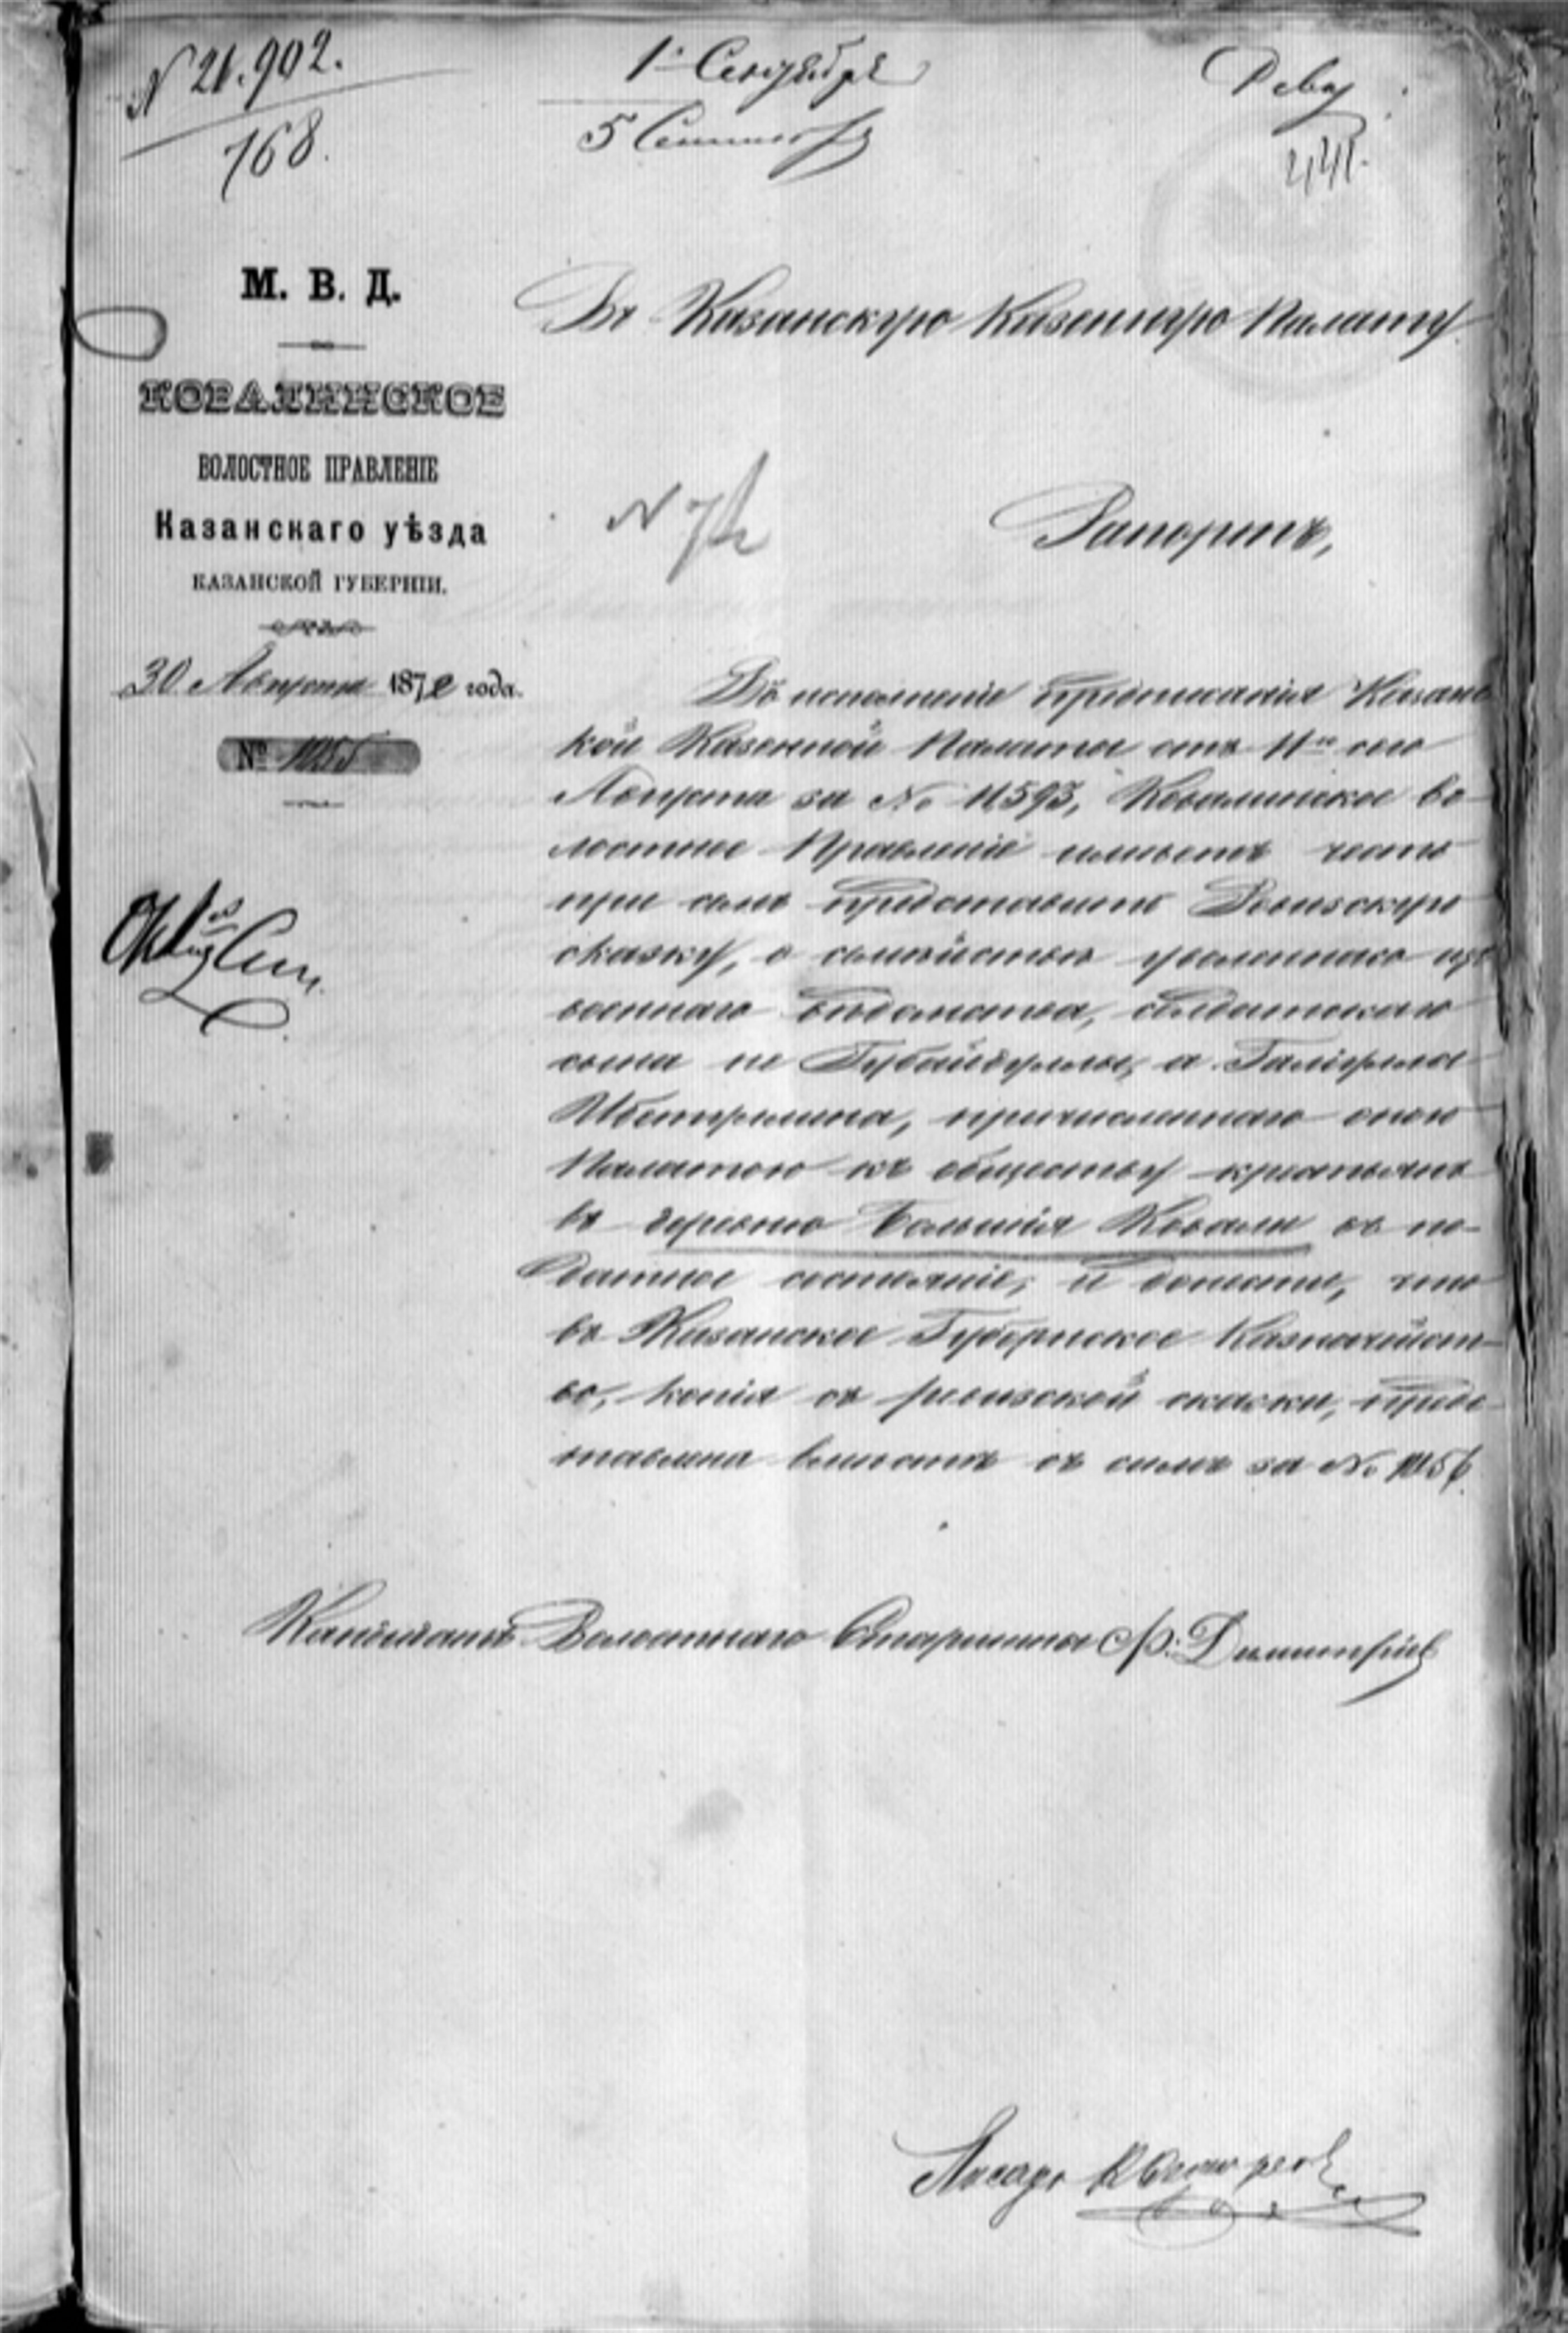 N 21.902.
168.
1 Сентября
5 Сентября
Рев
441.
М. В. Д.
КОВАЛИНСКОЕ
ВОЛОСТНОЕ ПРАВЛЕНІЕ
Казанскаго уѣзда
КАЗАНСКОЙ ГУБЕРНІИ.
30 Августа 187 года.
№ 1055
Въ Казанскую Казенную Палату
N
Рапортъ,
Во исполненіе предписанія Казанс
кой Казенной Палаты отъ 11го сего
Августа за № 11593, Ковалинское во-
лостное Правленіе имѣетъ честь
при семъ представить Ревизскую
сказку, о семействѣ уволеннаго изъ
военнаго вѣдомства, солдатскаго
сына не Губайдуллы, а Галиулла
причисленнаго оною
Палатою къ обществу крестьянъ
въ деревню Большія Ковали въ по-
датное состояніе, и донести, что
въ Казанское Губернское Казначейст-
во, копія съ ревизской сказки, предс-
тавлена вмѣстѣ съ симъ за № 1056
Волостнаго Старшина Димитріев
Писарь